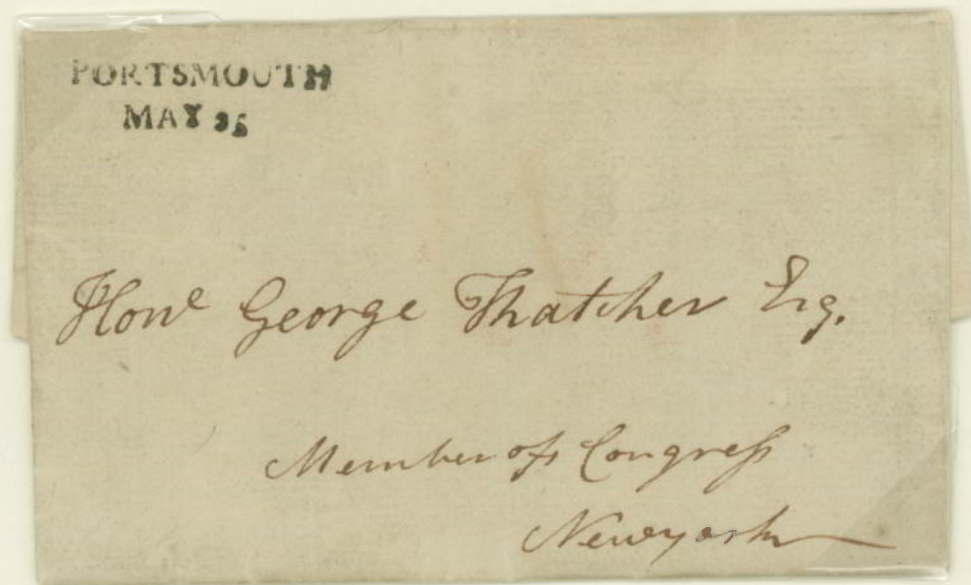 PORTSMOUTH
MAY 25
Honᵉ George Thatcher Esq.
Member of Congress
Newyork